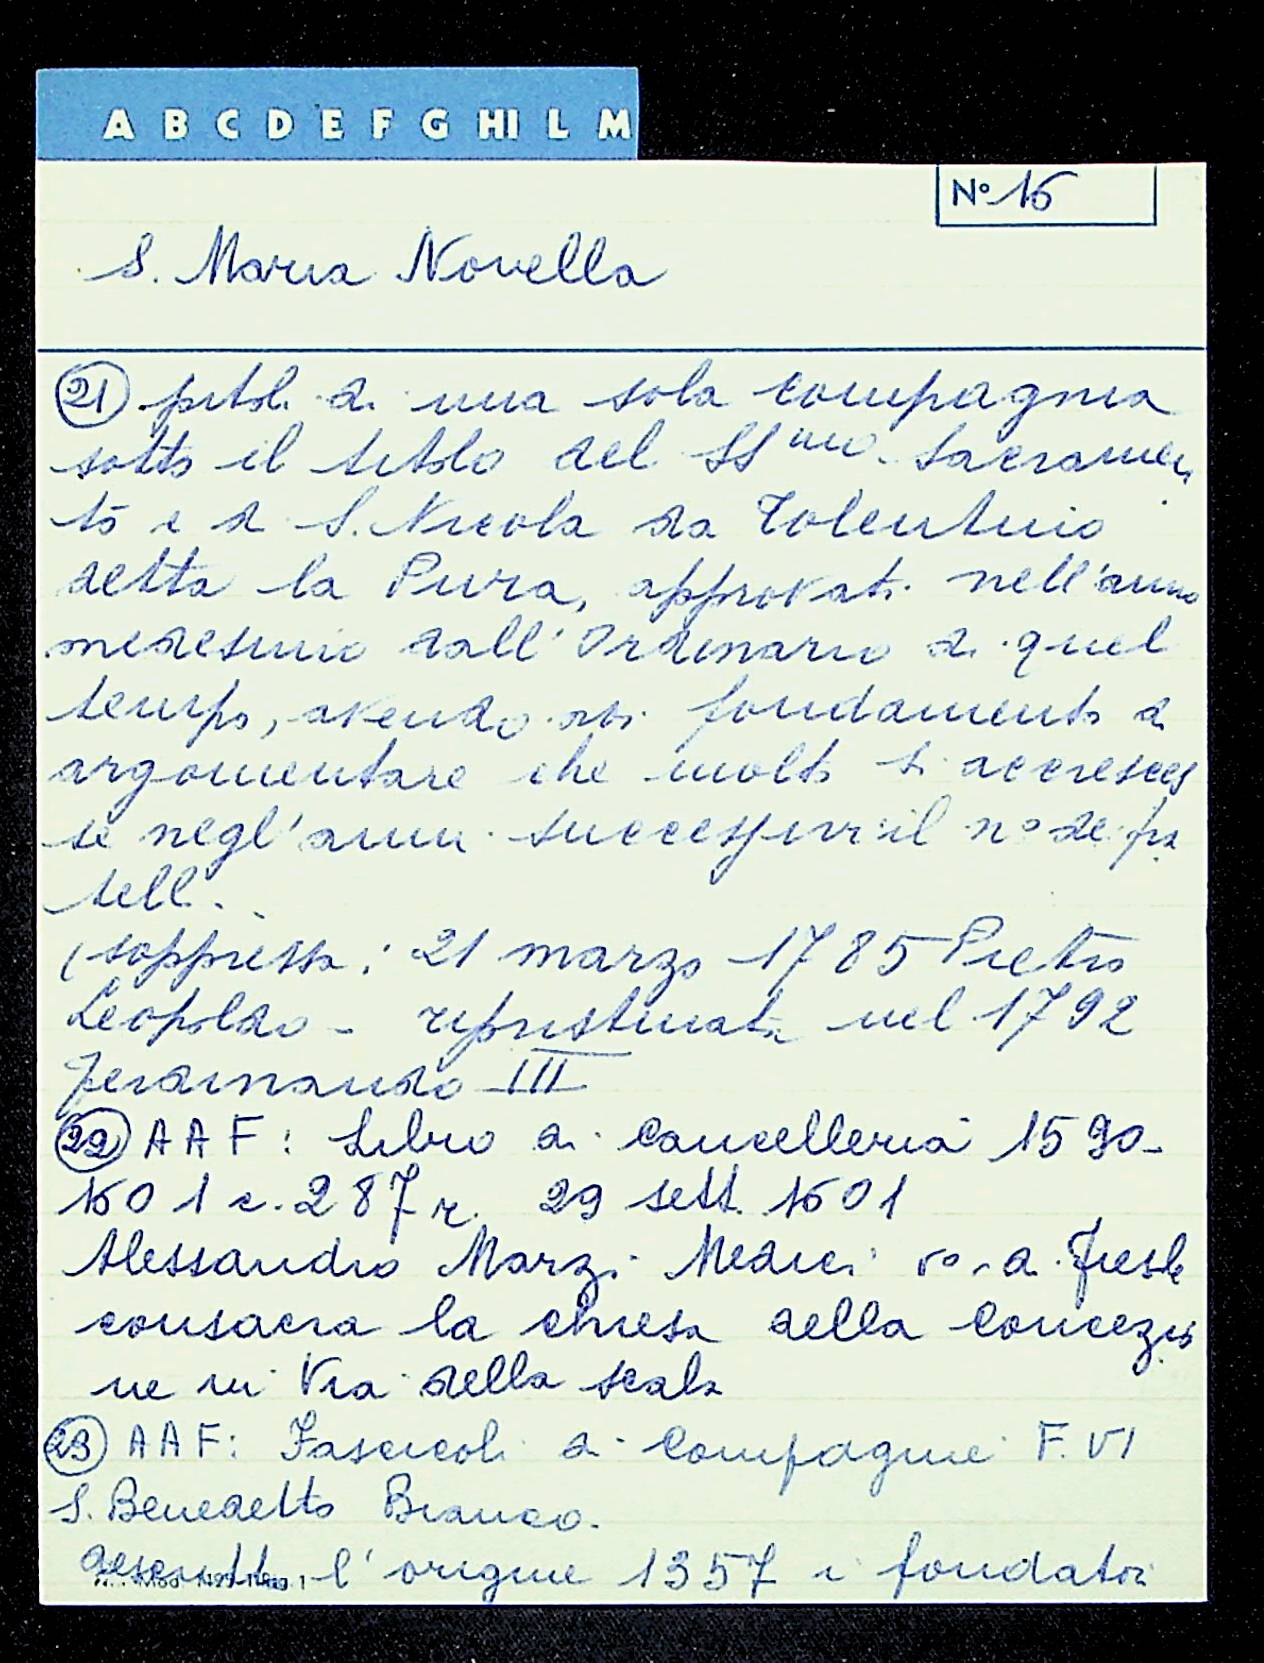 A B C D E F G HI L M
N° 16
S. Maria Novella
21 pitoli di una sola compagnia
sotto il titolo del SS^mo. Sacramen
to e di S. Nicola da Tolentino
detta la Pura, approvati nell'anno
medesimo dall'Ordinario di quel
tempo, avendo noi fondamento di
argomentare che molto si accresces
se negl'anni successivi il n° de fra
telli.
(soppressa: 21 marzo 1785 Pietro
Leopoldo - ripristinata nel 1792
Ferdinando III
22 AAF: Libro di Cancelleria 1590-
1601 c. 287 r. 29 sett. 1601
Alessandro Marzi Medici vo. di Fiesole
consacra la chiesa della Concezio
ne in Via della Scala
23 AAF: Fascicoli di Compagnie F. VI
S. Benedetto Bianco.
descritta l'origine 1357 i fondatori